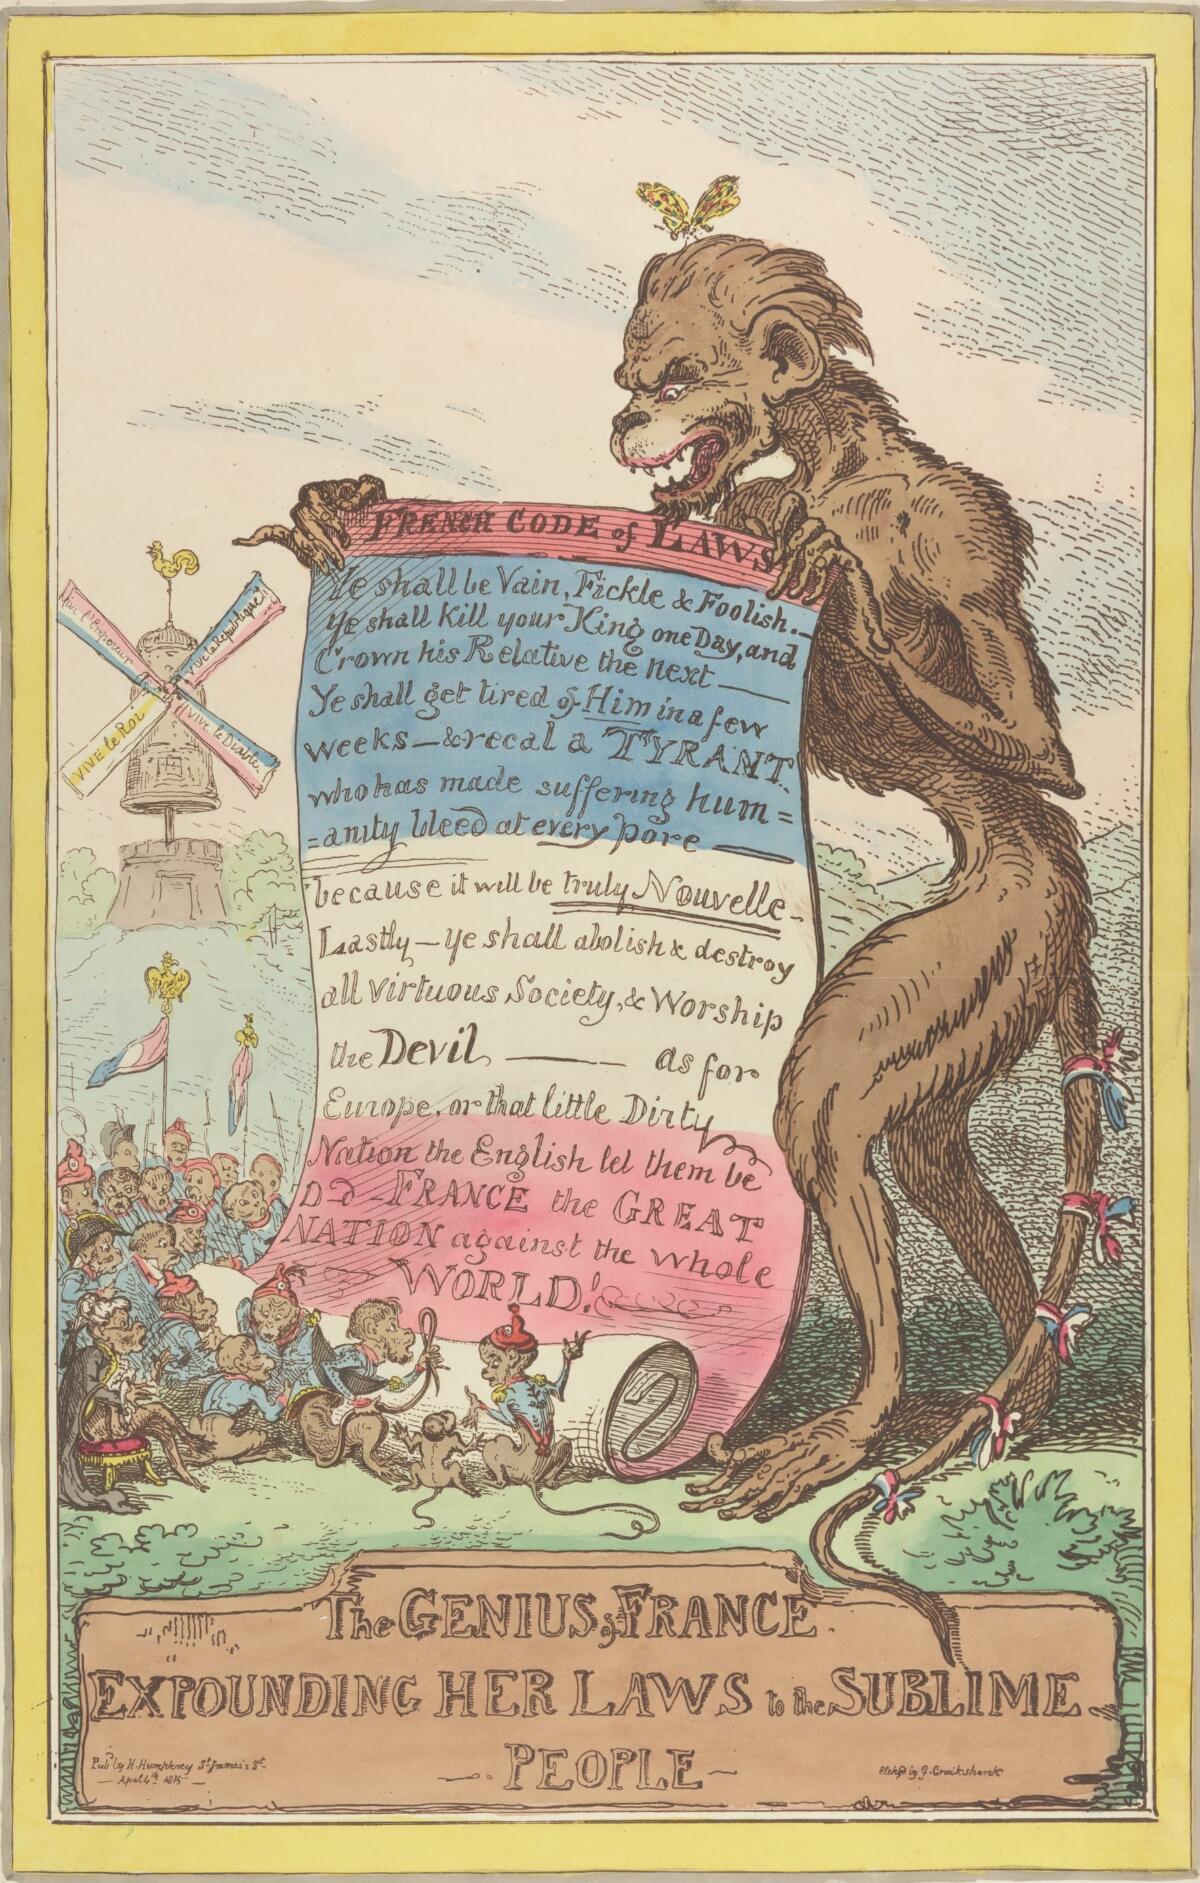 FRENCH CODE of LAWS
Ye shall be Vain, Fickle & Foolish.—
Ye shall kill your King one Day, and
Crown his Relative the next —
Ye shall get tired of Him in a few
weeks — & recal a TYRANT
who has made suffering hum =
= anity bleed at every pore —
because it will be truly Nouvelle -
Lastly — ye shall abolish & destroy
all virtuous Society, & Worship
the Devil — as for
Europe, or that little Dirty
Nation the English let them be
D—d - FRANCE the GREAT
NATION against the whole
WORLD!
Vive l'Empereur
Vive la Republique!
VIVE le Roi
Vive le Diable.
The GENIUS of FRANCE
EXPOUNDING HER LAWS to the SUBLIME
— PEOPLE —
Pubd by H. Humphrey St James's St
— April 4th 1815 —
Etchd by G. Cruikshank